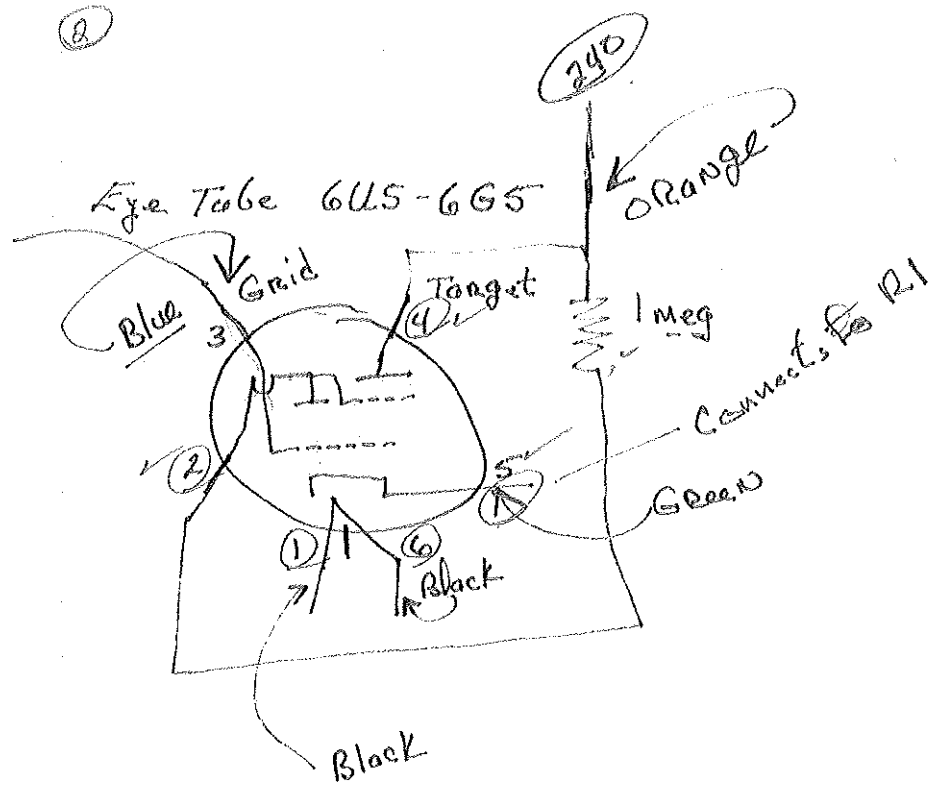 2
240
ORANGE
Eye Tube 6U5-6G5
Grid
Target
Blue
3
4
1 Meg
Connects to R1
2
5
1
Green
1
6
Black
Black